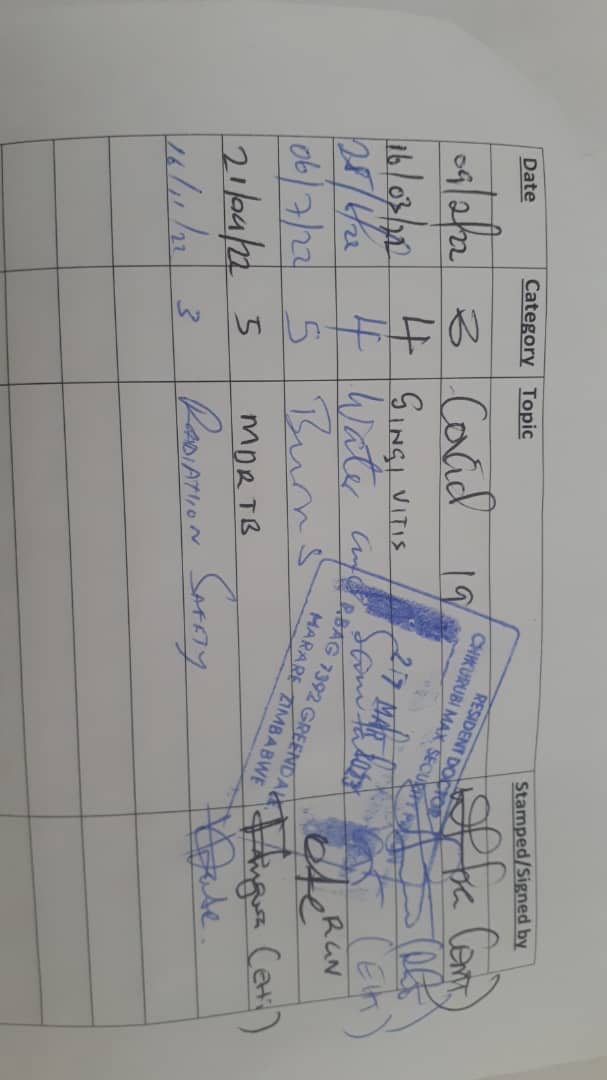 Date Category Topic Stamped/Signed by
09/2/22 8 Covid 19
16/03/22 4 GINGIVITIS
28/6/22 4 Water and (EHT)
06/7/22 5 Burns RGN
21/04/22 5 MDR TB
16/11/22 3 RADIATION SAFETY
RESIDENT DOCTOR
CHIKURUBI MAX SECURITY
27 MAR 2023
P. BAG 7392 GREENDALE
HARARE ZIMBABWE